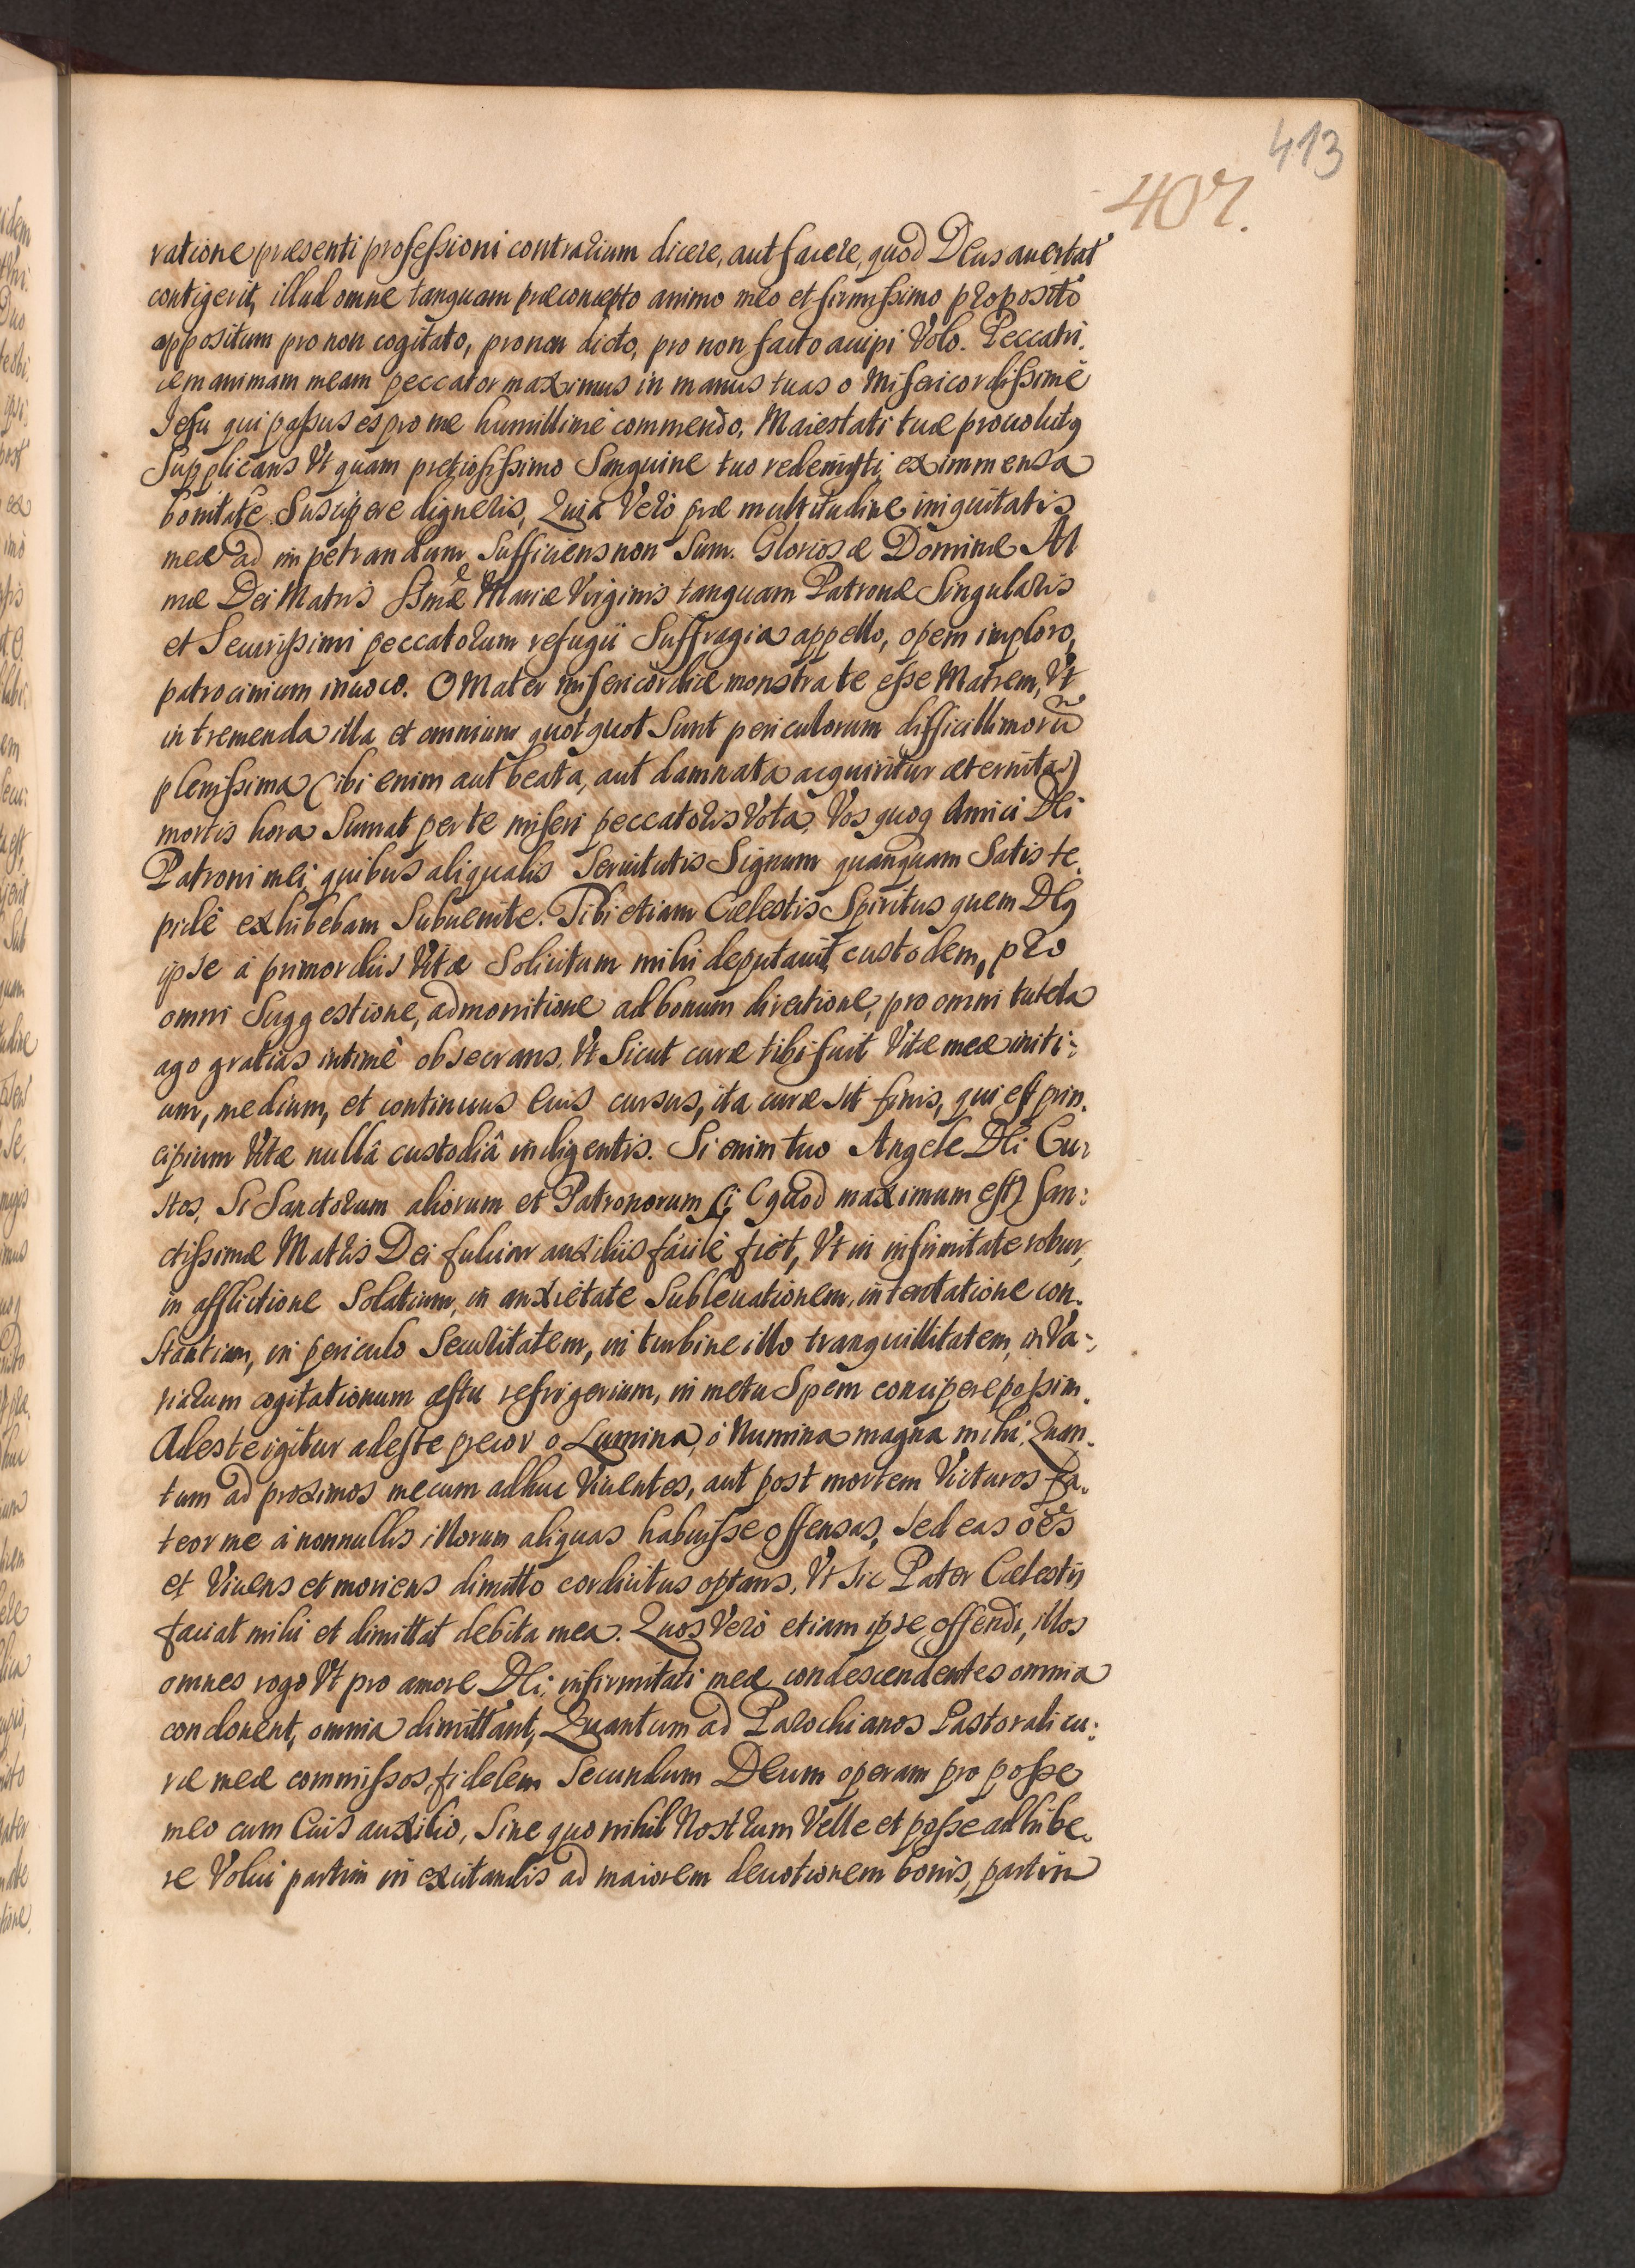 413
407.
ratione præsenti professioni contrarium dicere, aut facere, quod Deus auertat
contigerit, illud omne tanquam præconcepto animo meo et firmissimo proposito
oppositum pro non cogitato, pro non dicto, pro non facto accipi Volo. Peccatri.
cem animam meam peccator maximus in manus tuas o Misericordissime
Jesu qui passus es pro me humillimè commendo, Maiestati tuæ prouolutq
Supplicans Vt quam pretiosissimo Sanguine tuo redemisti, ex immensa
bonitate Suscipere digneris, Quia Verò præ multitudine iniquitatis
meæ ad impetrandum Sufficiens non Sum. Gloriosæ Dominæ Al
mæ Dei Matris SSmæ Mariæ Virginis tanquam Patronæ Singularis
et Securissimi peccatorum refugii Suffragia appello, opem imploro,
patrocinium inuoco. O Mater misericordiæ monstra te esse Matrem, Vt
in tremenda illa et omnium quotquot Sunt periculorum difficillimorū
plenissima (ibi enim aut beata, aut damnata acquiritur æternitas)
mortis hora Sumat per te miseri peccatoris Vota. Vos quoq Amici Dei
Patroni mei, quibus aliqualis Seruitutis Signum quanquam Satis te.
pidè exhibebam Subuenite. Tibi etiam Cœlestis Spiritus quem Dq
ipse à primordiis Vitæ Solicitum mihi deputauit custodem, pro
omni Suggestione, admonitione ad bonum directione, pro omni tutela
ago gratias intimè obsecrans, Vt Sicut curæ tibi fuit Vitæ meæ initi:
um, medium, et continuus eius cursus, ita curæ sit finis, qui est prin.
cipium Vitæ nullâ custodiâ indigentis. Si enim tuo Angele Dei Cu:
stos, Si Sanctorum aliorum et Patronorum si (quod maximum est) San:
ctissimæ Matris Dei fulciar auxiliis facilè fiet, Vt in infirmitate robur,
in afflictione Solatium, in anxietate Subleuationem, in tentatione con.
Stantiam, in periculo Securitatem, in turbine illo tranquillitatem, in Va:
riarum cogitationum æstu refrigerium, in metu Spem concipere possim.
Adeste igitur adeste precor o Lumina, ó Numina magna mihi, Quan.
tum ad proximos mecum adhuc Viuentes, aut post mortem Victuros fa.
teor me à nonnullis illorum aliquas habuisse offensas, sed eas oēs
et Viuens et moriens dimitto cordicitus optans, Vt Sic Pater Cœlestis
faciat mihi et dimittat debita mea. Quos Verò etiam ipse offendi, illos
omnes rogo Vt pro amore Dei, infirmitati meæ condescendentes omnia
condonent, omnia dimittant, Quantum ad Parochianos Pastorali cu:
ræ meæ commissos, fidelem Secundum Deum operam pro posse
meo cum Eius auxilio, Sine quo nihil Nostrum Velle et posse adhibe.
re Volui partim in excitandis ad maiorem deuotionem bonis, partim